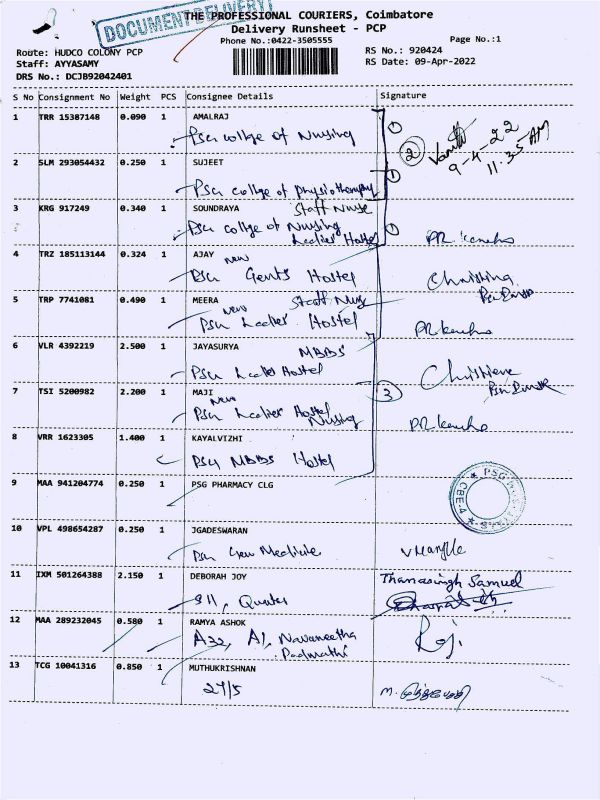 DOCUMENT DELIVERY
THE PROFESSIONAL COURIERS, Coimbatore
Delivery Runsheet - PCP
Phone No.:0422-3505555
Page No.:1
Route: HUDCO COLONY PCP
Staff: AYYASAMY
DRS No.: DCJB92042401
RS No.: 920424
RS Date: 09-Apr-2022
S No Consignment No Weight PCS Consignee Details Signature
1 TRR 15387148 0.090 1 AMALRAJ
PSG college of Nursing
2
9-4-22
11.35 AM
2 SLM 293054432 0.250 1 SUJEET
PSG college of physiotherapy
3 KRG 917249 0.340 1 SOUNDRAYA Staff Nurse
PSG college of Nursing
Ladies Hostel
4 TRZ 185113144 0.324 1 AJAY
new
PSG Gents Hostel
5 TRP 7741081 0.490 1 MEERA Staff Nurse
new
PSG Ladies Hostel
6 VLR 4392219 2.500 1 JAYASURYA MBBS
PSG Ladies Hostel
7 TSI 5200982 2.200 1 MAJI
new
PSG Ladies Hostel
Nursing
3
8 VRR 1623305 1.400 1 KAYALVIZHI
PSG MBBS Hostel
9 MAA 941204774 0.250 1 PSG PHARMACY CLG
PSG
CBE-4
10 VPL 498654287 0.250 1 JGADESWARAN
PSG Gen Medicine
11 IXM 501264388 2.150 1 DEBORAH JOY Thanasingh Samuel
911, Quaters
12 MAA 289232045 0.580 1 RAMYA ASHOK
A32, A1, Navaneetha
Padmathi
Roji
13 TCG 10041316 0.850 1 MUTHUKRISHNAN
27/5